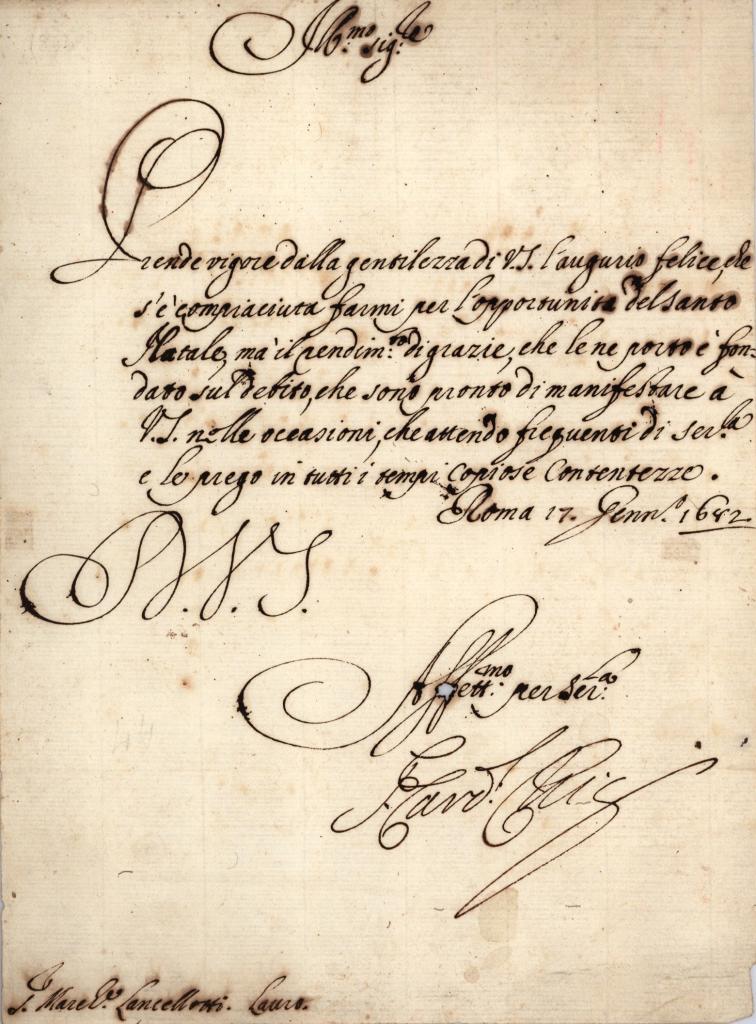 Ill.mo sig.re
Prende vigore dalla gentilezza di V.S. l'augurio felice, che
s'è compiaciuta farmi per l'opportunità del santo
Natale, mà il rendim.to di grazie, che le ne porto è fon-
dato sul debito, che sono pronto di manifestare à
V.S. nelle occasioni, che attendo frequenti di ser.la
e le prego in tutti i tempi copiose contentezze.
Roma 17. Genn.o 1682
D. V. S.
Affett.mo per ser.la
F. Card.l Chigi
S. March.e Lancellotti. Lauro.